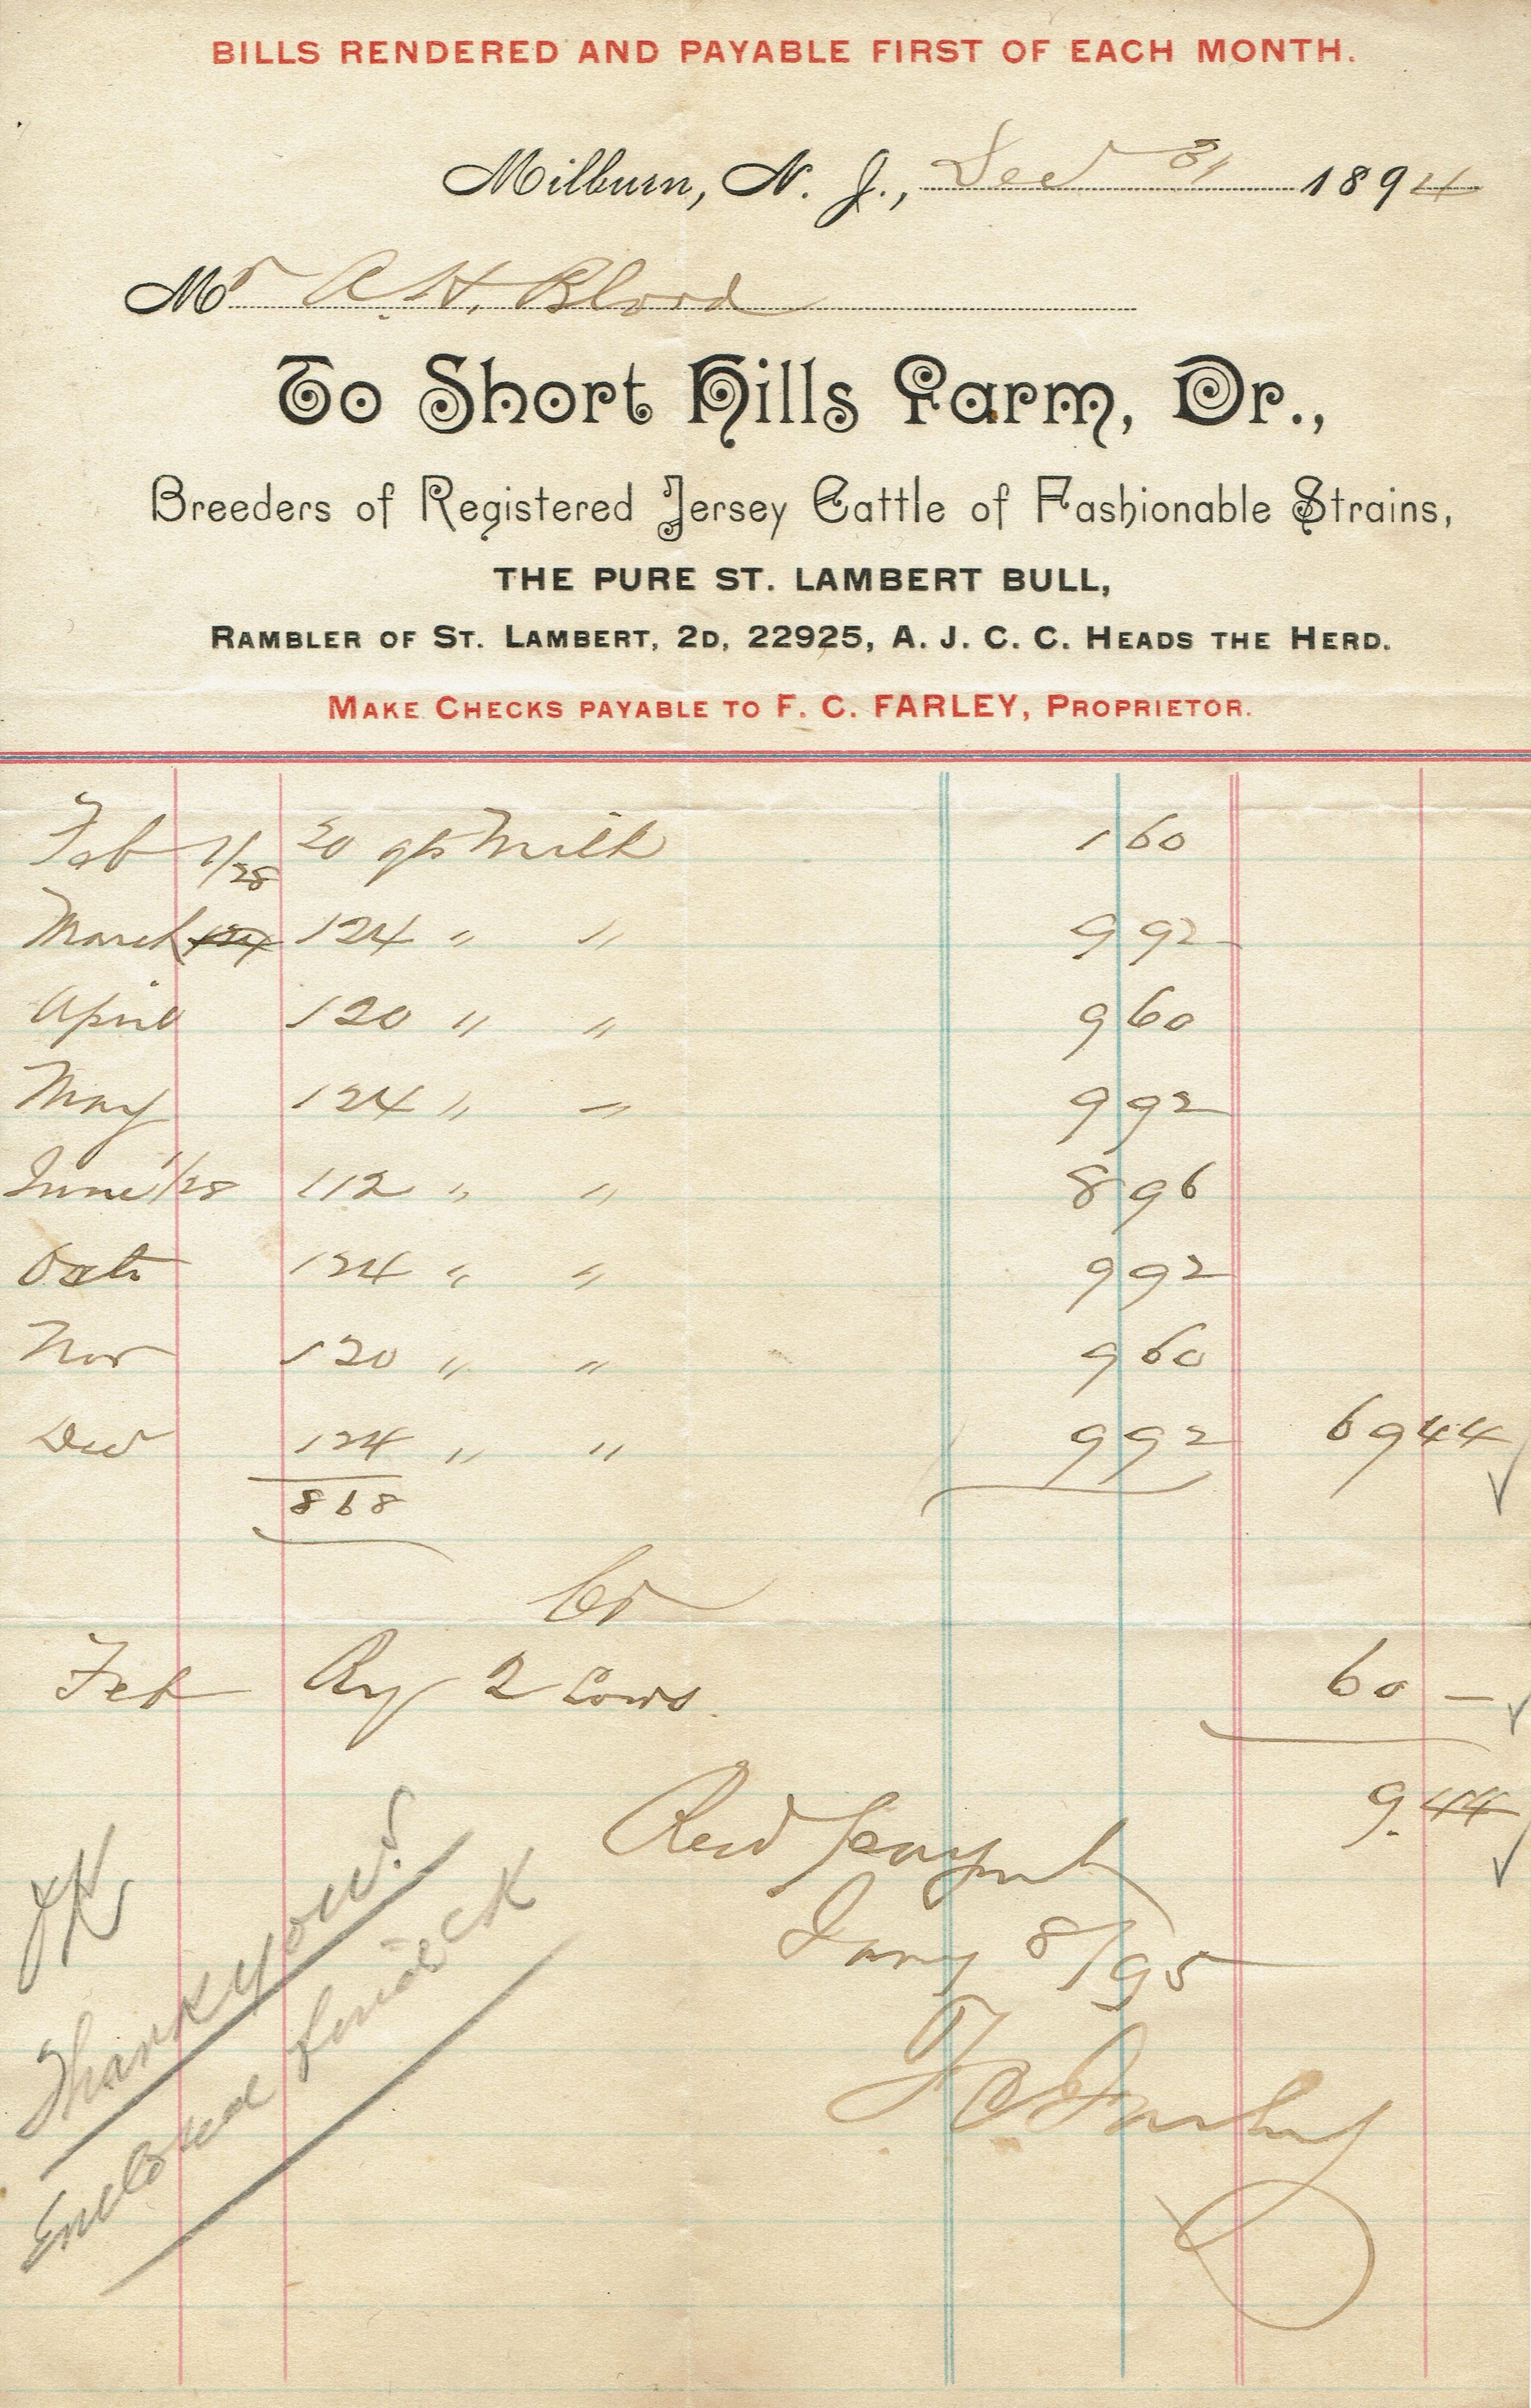 BILLS RENDERED AND PAYABLE FIRST OF EACH MONTH.
Milburn, N. J., Dec 31 1894
Mr A. H. Blood
To Short Hills Farm, Dr.,
Breeders of Registered Jersey Cattle of Fashionable Strains,
THE PURE ST. LAMBERT BULL,
RAMBLER OF ST. LAMBERT, 2D, 22925, A. J. C. C. HEADS THE HERD.
MAKE CHECKS PAYABLE TO F. C. FARLEY, PROPRIETOR.
Feb /28 20 qts Milk 1 60
March 124 " " 9 92
April 120 " " 9 60
May 124 " " 9 92
June 1/28 112 " " 8 96
Oct 124 " " 9 92
Nov 120 " " 9 60
Dec 124 " " 9 92 69 44
868
Cr
Feb By 2 Cows. 60 —
9.44
Recd Payment
Jany 8/95
F. C. Farley
Thank you.
Enclosed find ck